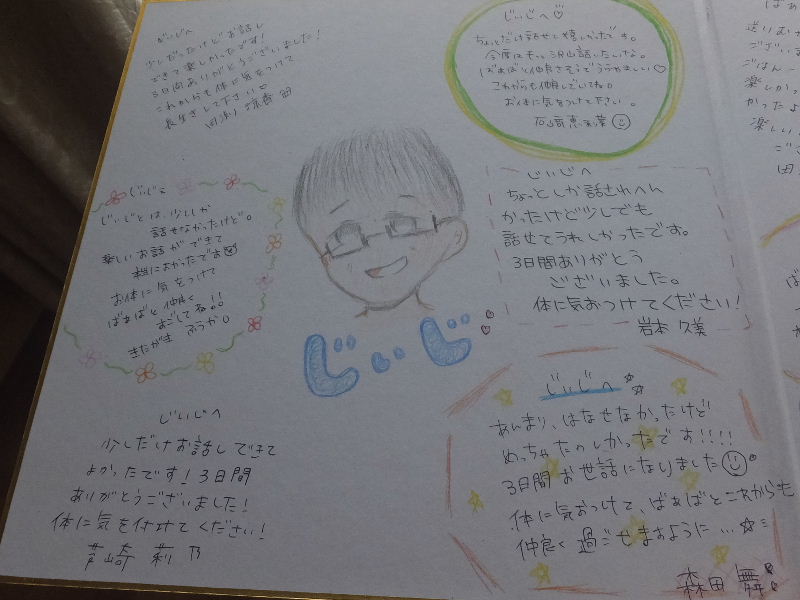 じいじへ
少しだったけどお話し
できて楽しかったです!
3日間ありがとうございました!
これからも体に気をつけて
長生きして下さい♡
じいじへ♡
ちょっとだけ話せて嬉しかったです。
今度はもっと沢山話したいな。
ばあばと仲良さそうでうらやましい♡
これからも仲良しでいてね。
お体に気をつけて下さい。
じいじへ
じいじとは、少ししか
話せなかったけど。
楽しいお話ができて
お体に気をつけて
ばあばと仲良く
すごしてね!!
きたがき ふうか
じいじへ
ちょっとしか話されへん
かったけど少しでも
話せてうれしかったです。
3日間ありがとう
ございました。
体に気おつけてください!
岩本 久美
じぃじ
じいじへ
少しだけお話しできて
よかったです!3日間
ありがとうございました!
体に気を付けてください!
じいじへ
あんまり、はなせなかったけど
めっちゃたのしかったです!!!!
3日間お世話になりました
体に気おつけて、ばあばとこれからも
仲良く過ごせますように...☆
森田 舞